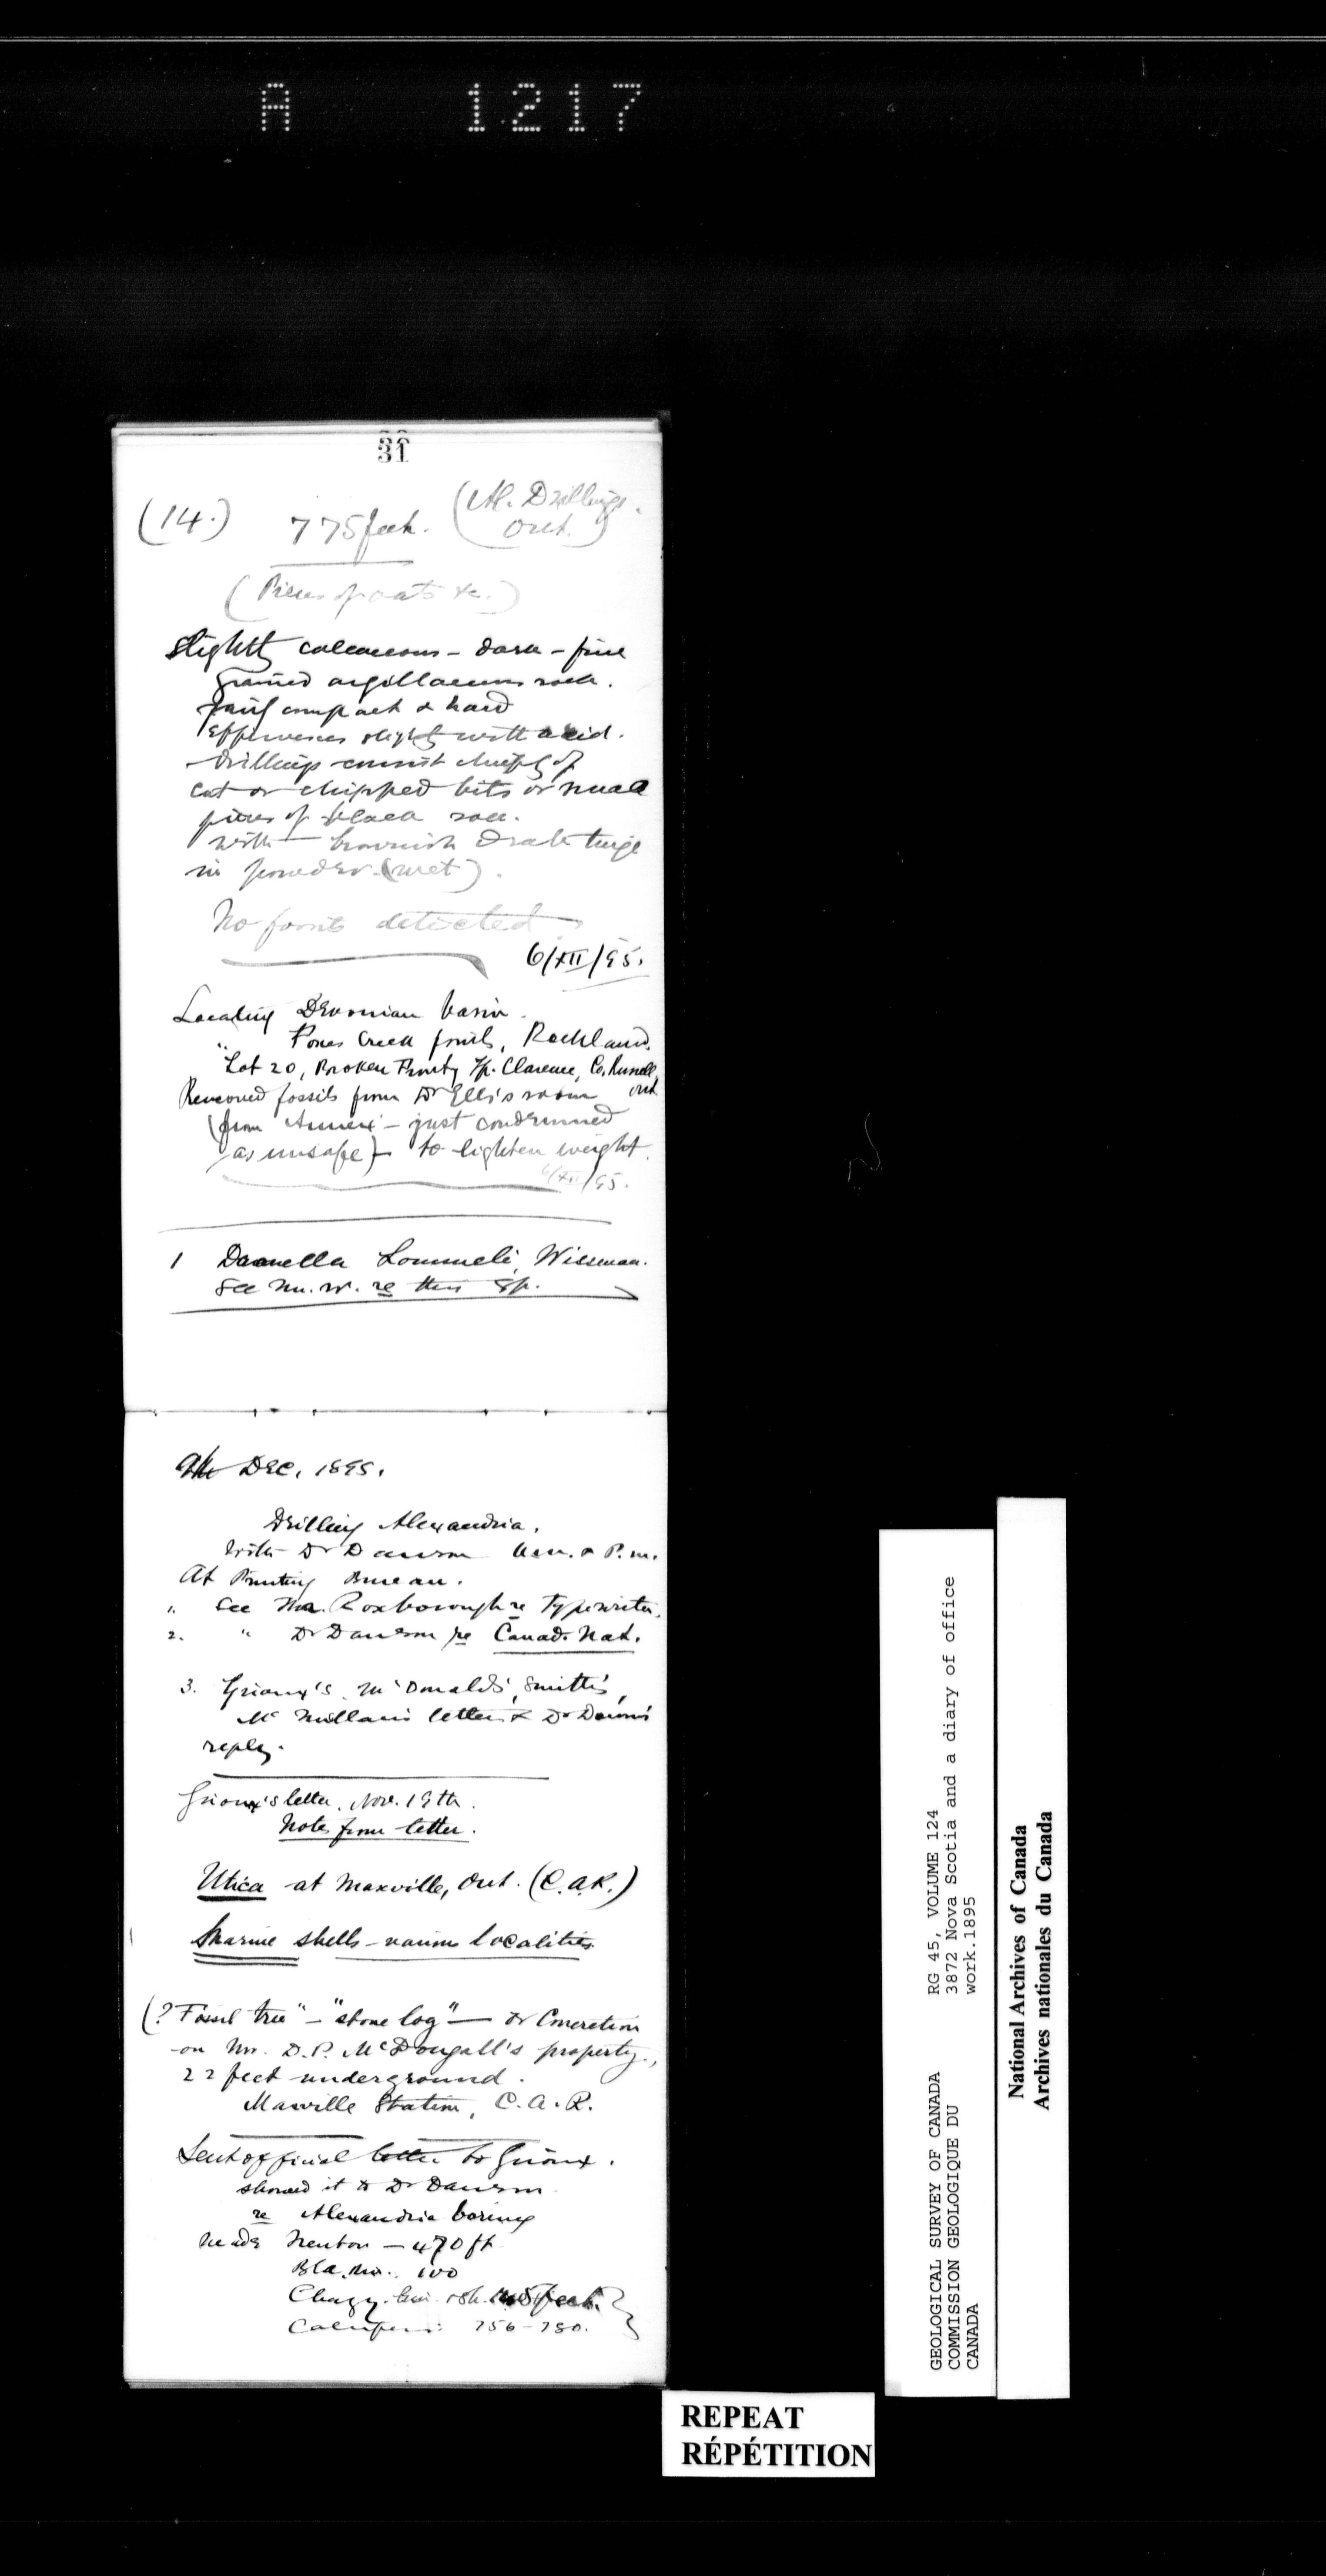 A 1217
31
(14.) 775 feet. (Al. Drillings. Ont.)
(Pieces of oats &c.)
Slightly calcareous - dark - fine
grained argillaceous rock.
fairly compact & hard
Effervesces slightly with acid.
Drillings consist chiefly of
cut or chipped bits or small
pieces of black rock.
with brownish drab tinge
in powder (wet).
No fossils detected
6/XII/95.
Locality Devonian basin.
" Creek fossils, Rockland.
Lot 20, Broken Front, Tp. Clarence, Co. Russell, Ont
Removed fossils from Dr Ells's room
(from Annex - just condemned
as unsafe) - to lighten weight.
6/XII/95.
1 Daonella Lommeli, Wissman.
See Mr. W. re this sp.
9th DEC. 1895.
Drilling Alexandria.
with Dr Dawson a.m. & P.m.
At Printing Bureau.
1. See Mr. Roxborough re Typewriter.
2. " Dr Dawson re Canad. Nat.
3. Grioux's, McDonald's, Smith's,
McMillan's letters & Dr Dawson's
reply.
Grioux's letter, Nov. 19th.
Notes from letter.
Utica at Maxville, Ont. (C.A.R.)
Marine shells - various localities.
(? "Fossil tree" - "stone log" - or Concretion
on Mr. D.P. McDougall's property,
22 feet underground.
Maxville Station, C.A.R.
Sent official letter to Grioux.
showed it to Dr Dawson
re Alexandria boring
made Trenton - 470 ft.
Bla. Riv. 100
Chazy. lim. & sh. feet.
Calciferous: 756-780.
GEOLOGICAL SURVEY OF CANADA
COMMISSION GEOLOGIQUE DU
CANADA
RG 45, VOLUME 124
3872 Nova Scotia and a diary of office
work.1895
National Archives of Canada
Archives nationales du Canada
REPEAT
RÉPÉTITION